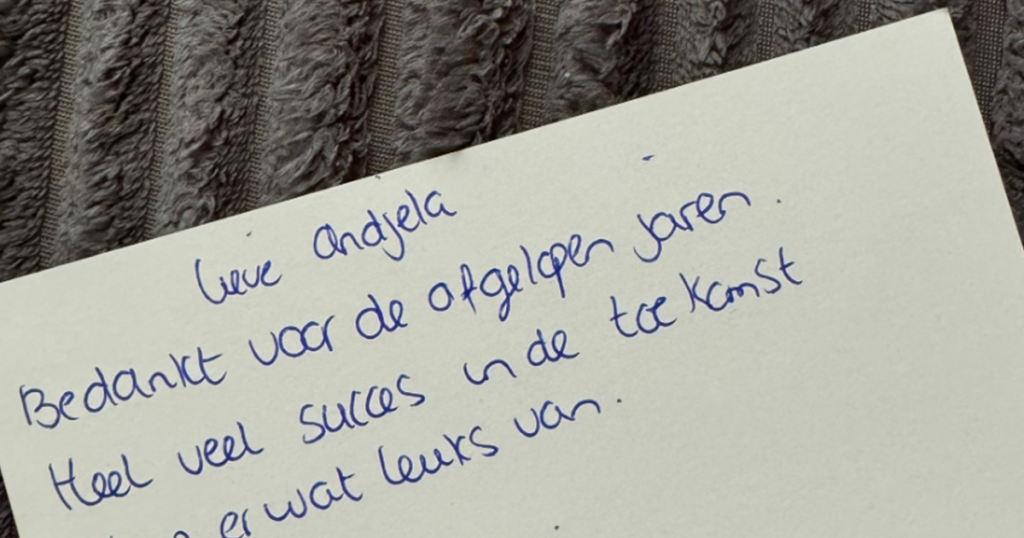 Lieve Andjela
Bedankt voor de afgelopen jaren.
Heel veel succes in de toekomst
er wat leuks van.